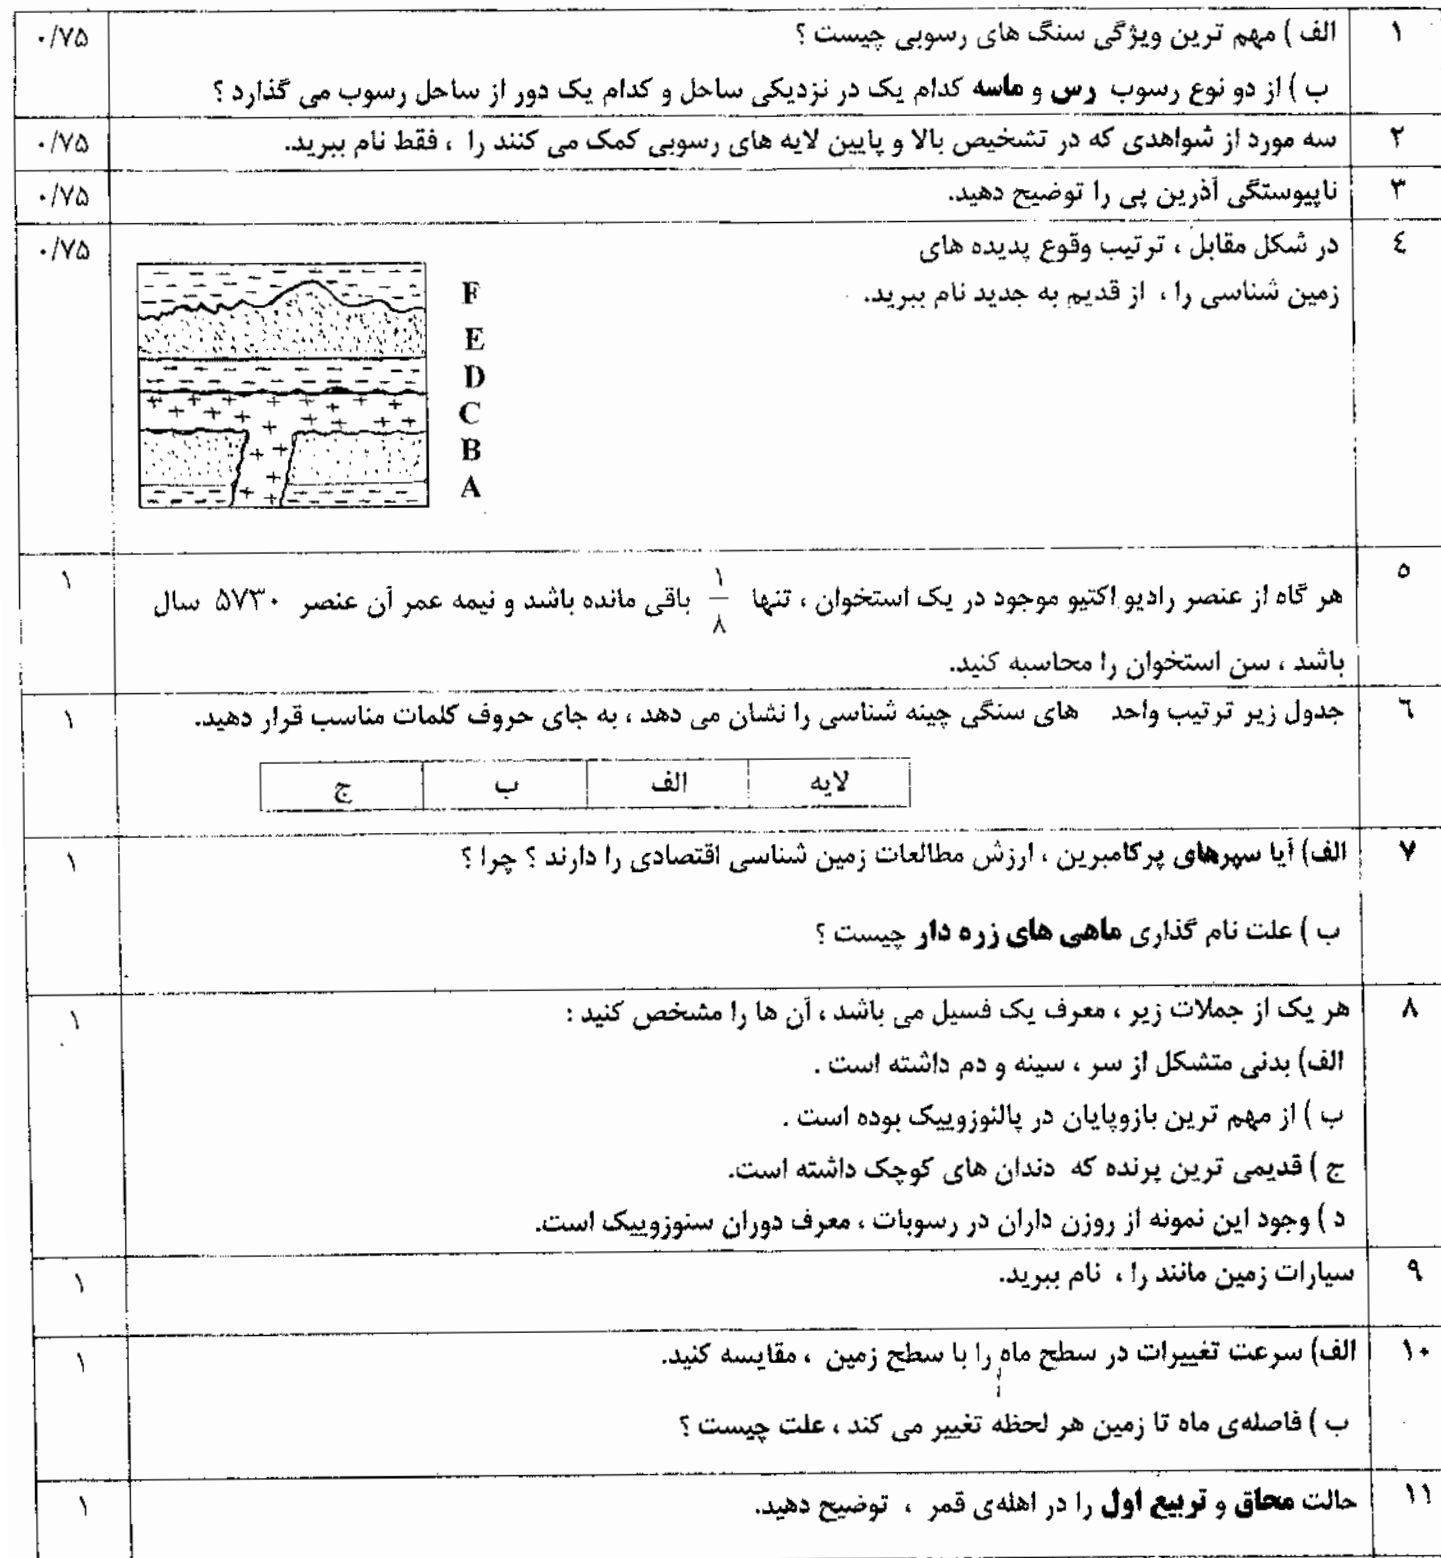 ۱ الف ) مهم ترین ویژگی سنگ های رسوبی چیست ؟ ۰/۷۵
ب ) از دو نوع رسوب رس و ماسه کدام یک در نزدیکی ساحل و کدام یک دور از ساحل رسوب می گذارد ؟
۲ سه مورد از شواهدی که در تشخیص بالا و پایین لایه های رسوبی کمک می کنند را ، فقط نام ببرید. ۰/۷۵
۳ ناپیوستگی آذرین پی را توضیح دهید. ۰/۷۵
٤ در شکل مقابل ، ترتیب وقوع پدیده های ۰/۷۵
زمین شناسی را ، از قدیم به جدید نام ببرید.
F
E
D
C
B
A
٥ هر گاه از عنصر رادیو اکتیو موجود در یک استخوان ، تنها ۱/۸ باقی مانده باشد و نیمه عمر آن عنصر ۵۷۳۰ سال ۱
باشد ، سن استخوان را محاسبه کنید.
٦ جدول زیر ترتیب واحد های سنگی چینه شناسی را نشان می دهد ، به جای حروف کلمات مناسب قرار دهید. ۱
لایه الف ب ج
۷ الف) آیا سپرهای پرکامبرین ، ارزش مطالعات زمین شناسی اقتصادی را دارند ؟ چرا ؟ ۱
ب ) علت نام گذاری ماهی های زره دار چیست ؟
۸ هر یک از جملات زیر ، معرف یک فسیل می باشد ، آن ها را مشخص کنید : ۱
الف) بدنی متشکل از سر ، سینه و دم داشته است .
ب ) از مهم ترین بازوپایان در پالئوزوییک بوده است .
ج ) قدیمی ترین پرنده که دندان های کوچک داشته است.
د ) وجود این نمونه از روزن داران در رسوبات ، معرف دوران سنوزوییک است.
۹ سیارات زمین مانند را ، نام ببرید. ۱
۱۰ الف) سرعت تغییرات در سطح ماه را با سطح زمین ، مقایسه کنید. ۱
ب ) فاصله‌ی ماه تا زمین هر لحظه تغییر می کند ، علت چیست ؟
۱۱ حالت محاق و تربیع اول را در اهله‌ی قمر ، توضیح دهید. ۱